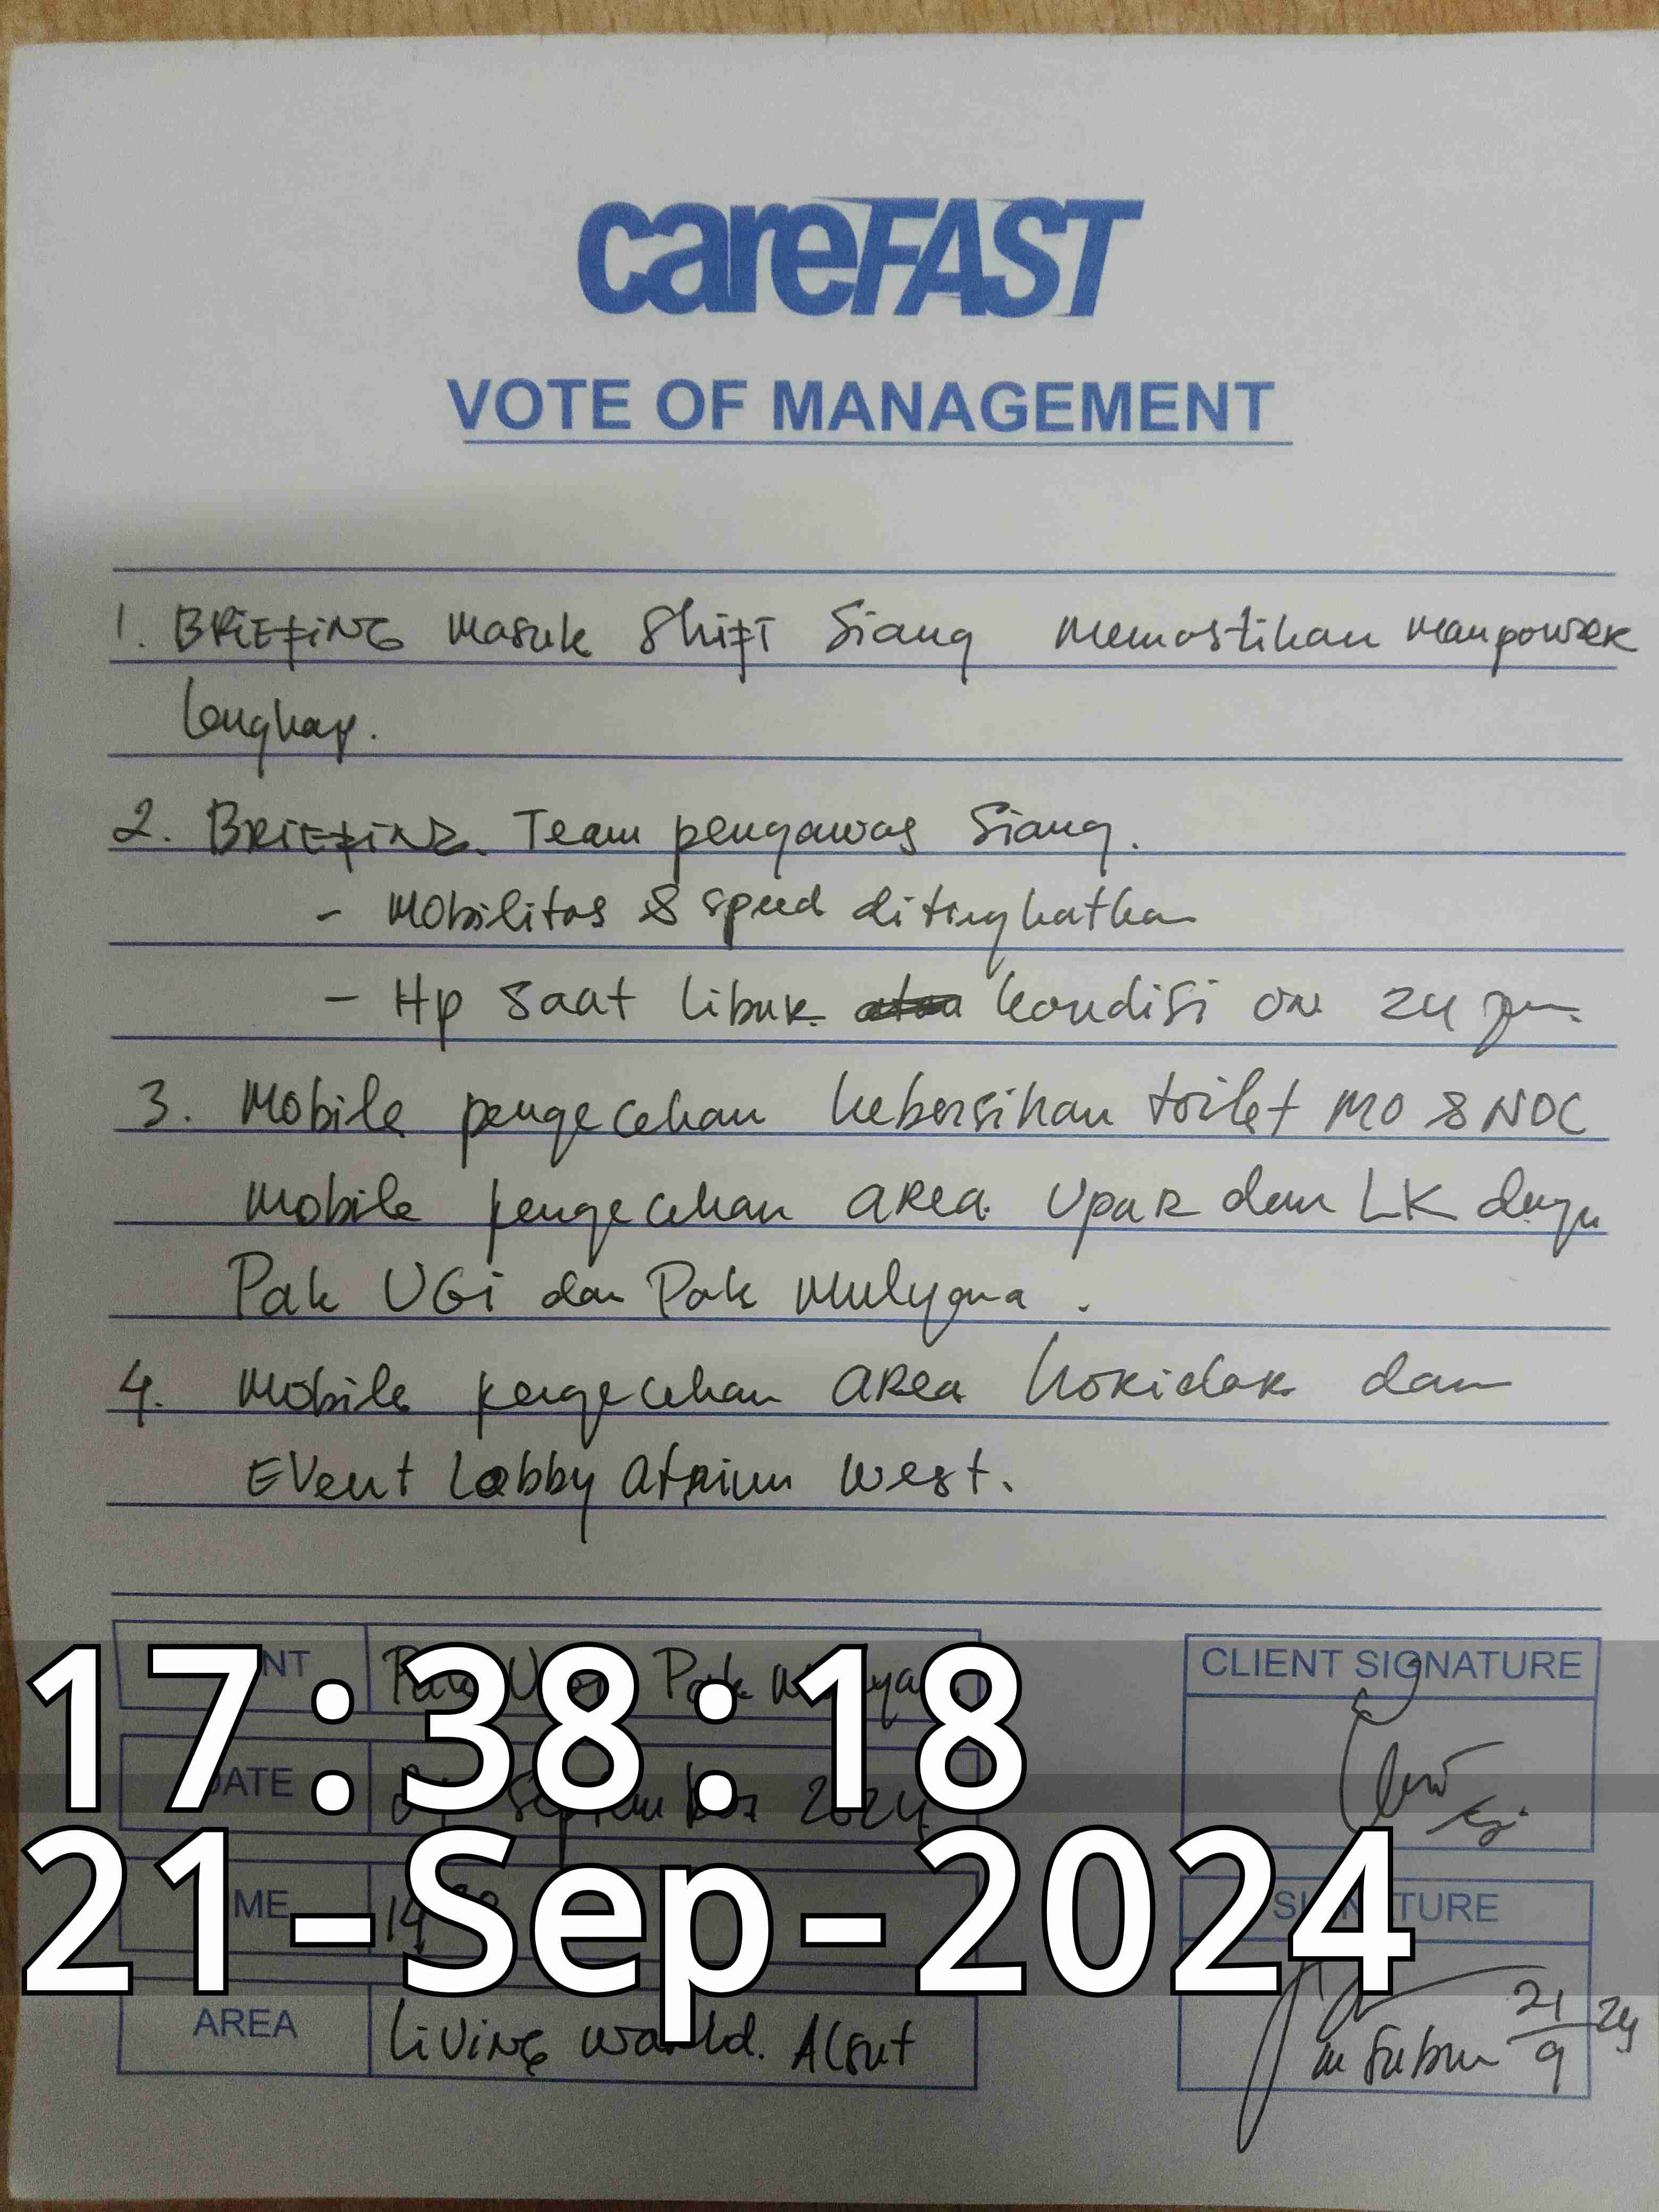 careFAST
VOTE OF MANAGEMENT
1. BRIEFING Masuk Shift Siang Memastikan Manpower
lengkap.
2. BRIEFING. Team pengawas Siang.
- Mobilitas & speed ditingkatkan
- Hp saat libur kondisi on 24 jam.
3. Mobile pengecekan kebersihan toilet MO & NDC
Mobile pengecekan area Upar dan LK dengan
Pak UGi dan Pak Mulyana.
4. Mobile pengecekan area koridor dan
Event Lobby Atrium West.
Pak Pak
DATE September 2024
AREA Living World. Alsut
CLIENT SIGNATURE
SIGNATURE
21/9 24
17:38:18
21-Sep-2024